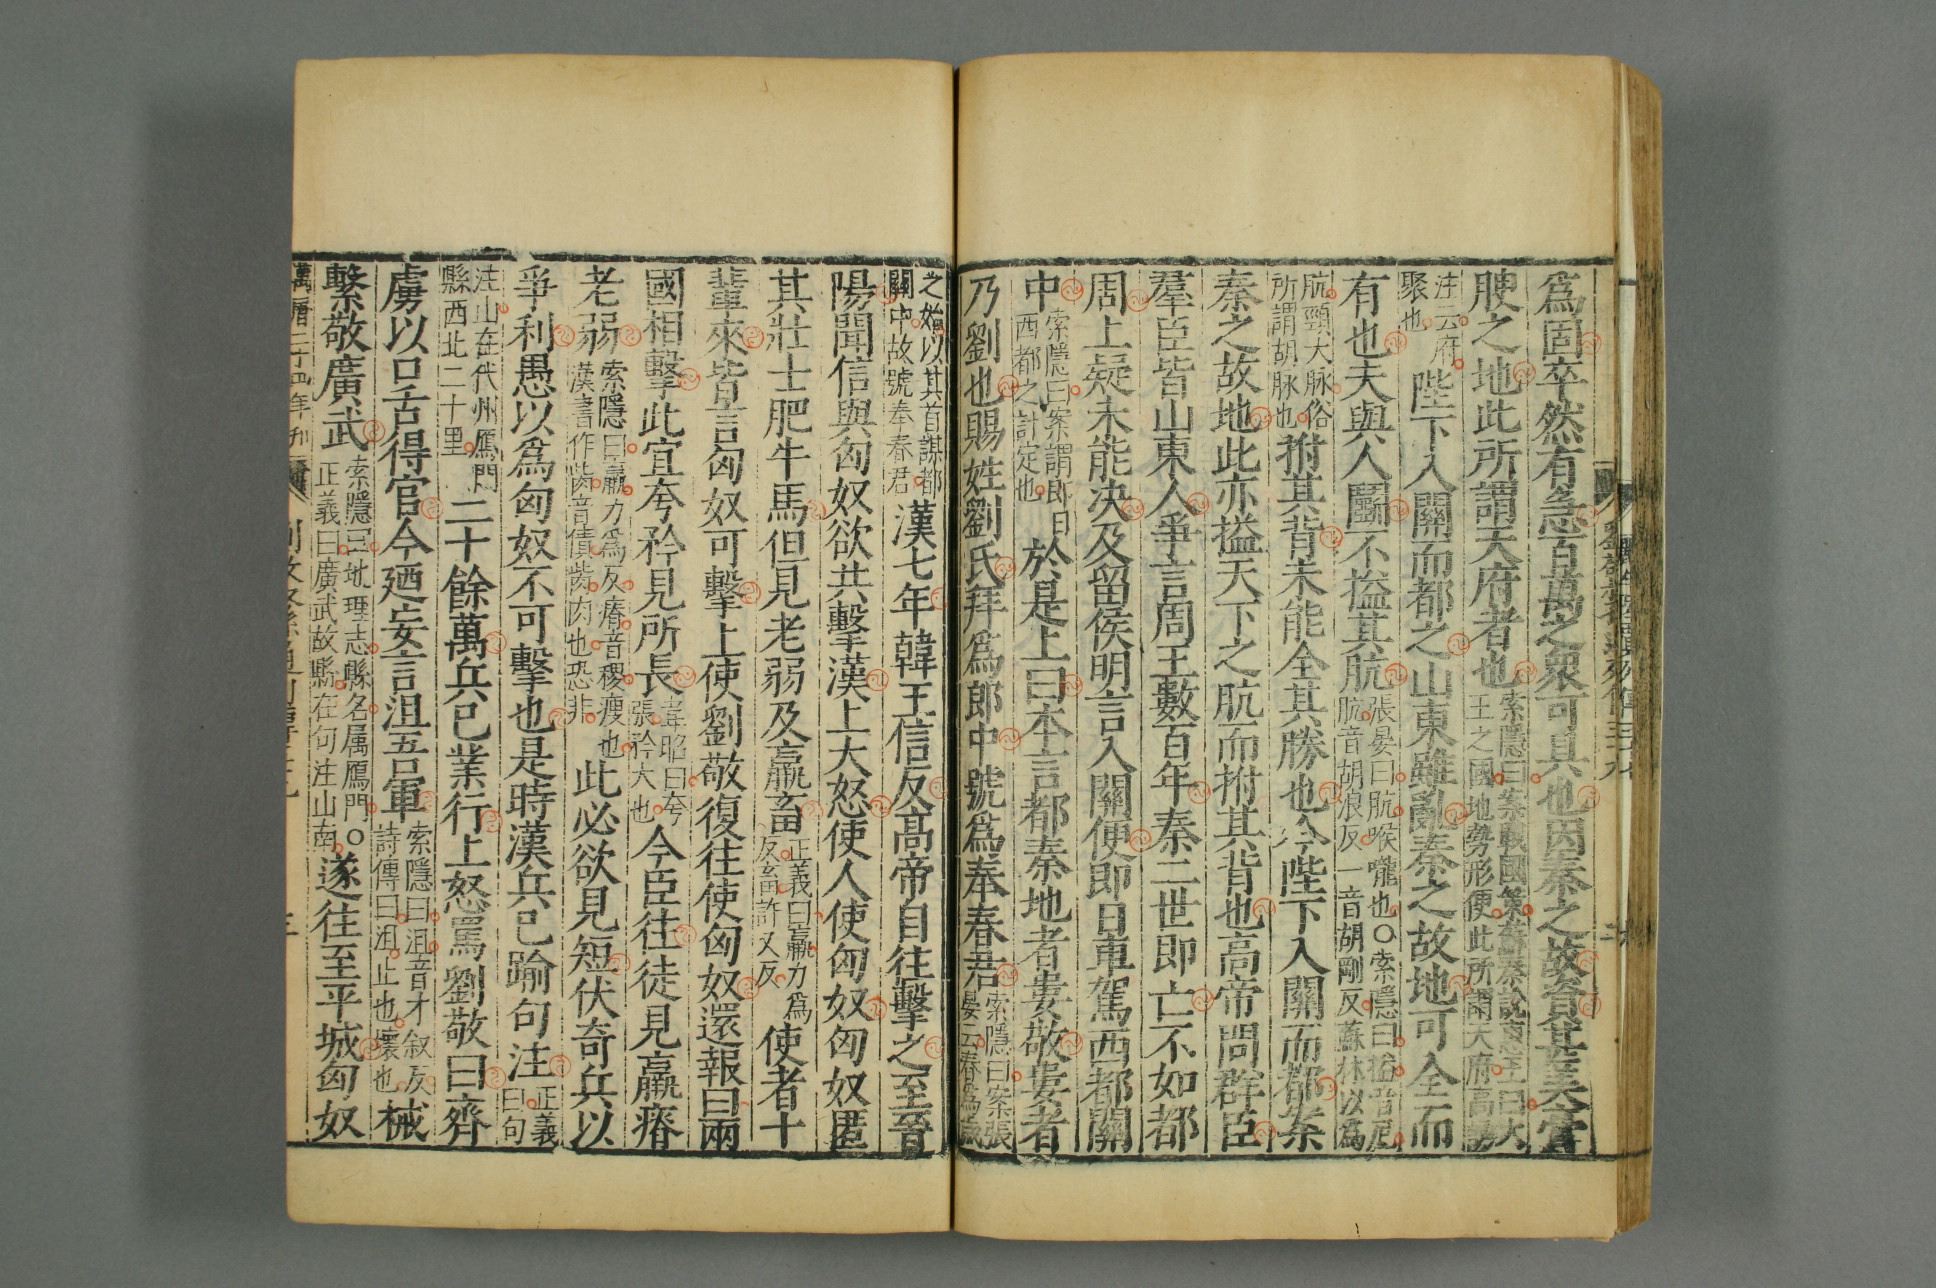 爲固卒然有急百萬之衆可具也因秦之故資甚美膏
腴之地此所謂天府者也索隱曰案戰國策蘇秦說惠王曰大王之國地勢形便此所謂天府高誘
注云府聚也陛下入關而都之山東雖亂秦之故地可全而
有也夫與人鬭不搤其肮張晏曰肮喉嚨也○索隱曰搤音厄肮音胡浪反一音胡剛反蘇林以爲
肮頸大脉俗所謂胡脉也拊其背未能全其勝也今陛下入關而都案
秦之故地此亦搤天下之肮而拊其背也高帝問群臣
羣臣皆山東人爭言周王數百年秦二世即亡不如都
周上疑未能决及留侯明言入關便即日車駕西都關
中索隱曰案謂即日西都之計定也於是上曰本言都秦地者婁敬婁者
乃劉也賜姓劉氏拜爲郎中號爲奉春君索隱曰案張晏云春爲歲
之始以其首謀都關中故號奉春君漢七年韓王信反高帝自往擊之至晉
陽聞信與匈奴欲共擊漢上大怒使人使匈奴匈奴匿
其壯士肥牛馬但見老弱及羸畜正義曰羸力爲反畜許又反使者十
輩來皆言匈奴可擊上使劉敬復往使匈奴還報曰兩
國相擊此宜夸矜見所長韋昭曰夸張矜大也今臣往徒見羸瘠
老弱索隱曰羸力爲反瘠音稷瘦也漢書作胔音漬胔肉也恐非此必欲見短伏奇兵以
爭利愚以爲匈奴不可擊也是時漢兵已踰句注正義曰句
注山在代州鴈門縣西北二十里二十餘萬兵已業行上怒罵劉敬曰齊
虜以口舌得官今廼妄言沮吾軍索隱曰沮音才叙反詩傳曰沮止也壞也械
繫敬廣武索隱曰地理志縣名属鴈門○正義曰廣武故縣在句注山南遂往至平城匈奴